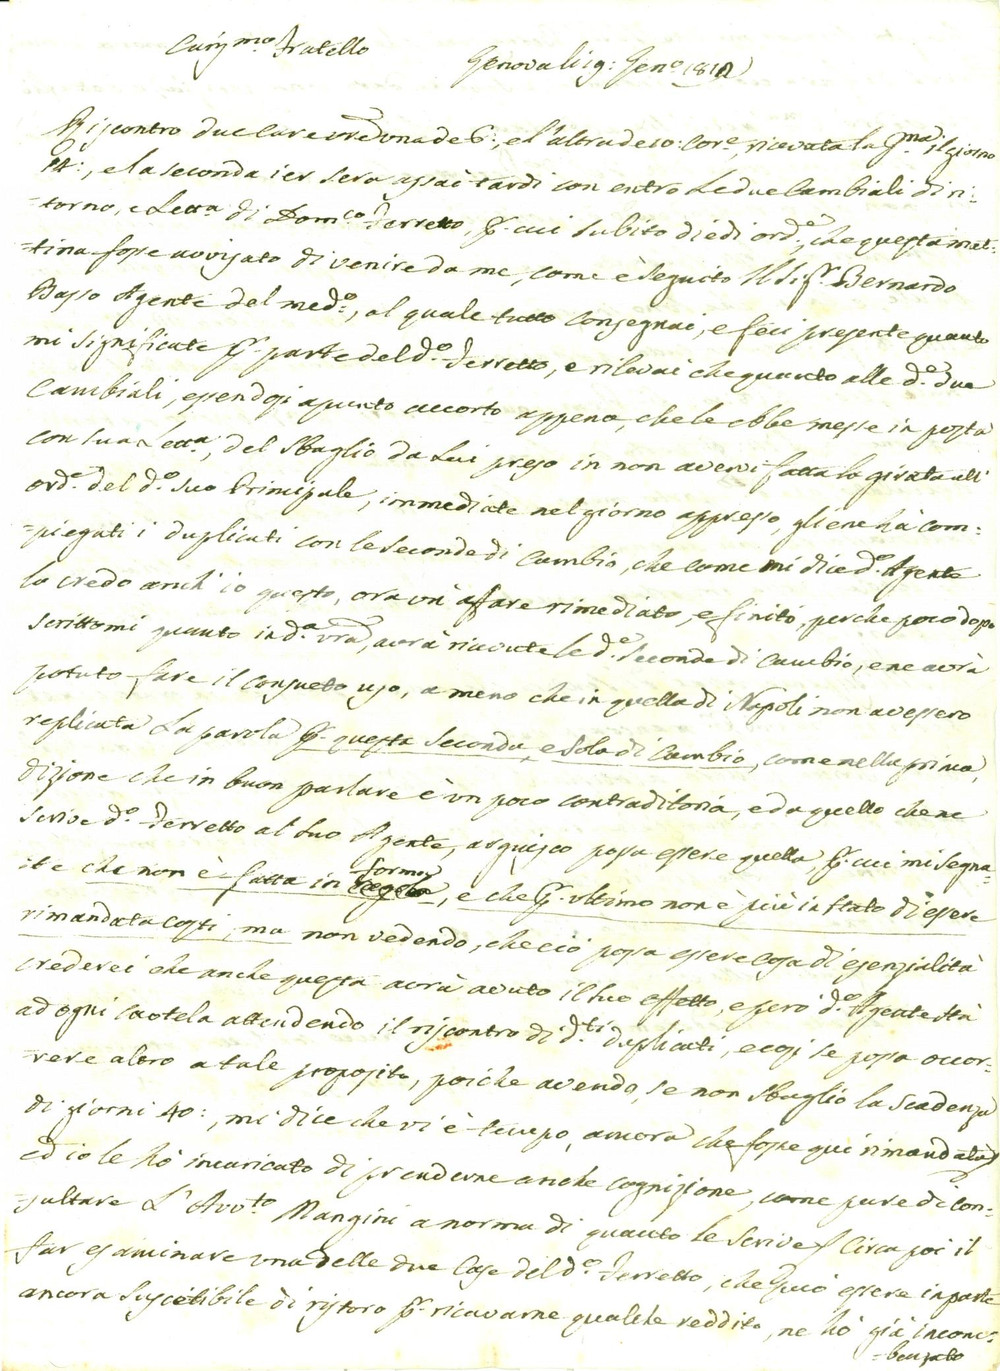 Carismo Fratello
Genova li 19: Geno 1812
Riscontro due care vre una de 6:, e l'altra de 10: Core, ricevuta la Pma il giorno
14:, e la seconda ier sera assai tardi con entro le due Cambiali di ri:
=torno, e Letta di Domco Ferretto, P. cui subito diedi orde, che questa mat:
=tina fosse avvisato di venire da me, come è seguito Il Sigr. Bernardo
Basso Agente del medo, al quale tutto consegnai, e feci presente quanto
mi significate P. parte del do Ferretto, e rilevai che quanto alle de due
Cambiali, essendosi apunto accorto appena, che le ebbe messe in posta
con sua Letta, del Sbaglio da Lui preso in non avervi fatta la girata all
orde del do suo Principale, immediate nel giorno appresso, gliene hà com:
=piegati i duplicati con le seconde di Cambio, che come mi dice do Agente
lo credo anch'io questo, ora un affare rimediato, e finito, perche poco dopo
scrittomi quanto in da vra, avrà ricevute le de Seconde di Cambio, e ne avrà
potuto fare il consueto uso, a meno che in quella di Napoli non avessero
replicata La parola P. questa seconda, e sola di Cambio, come nella prima,
dizione che in buon parlare è un poco contraditoria, e da quello che ne
scrive do Ferretto al suo Agente, arguisco possa essere quella, P. cui mi segna:
=te che non è fatta in regola forma, e che P. ultimo non è più in stato di essere
rimandata costì, ma non vedendo, che ciò possa essere cosa di esenzialità
crederei che anche questa avrà avuto il suo effetto, e però do Agente stà
ad ogni cautela attendendo il riscontro di dti duplicati, e così se possa occor:
=rere altro a tale proposito, poiche avendo, se non sbaglio la scadenza
di giorni 40:, mi dice che vi è tempo, ancora che fosse qui rimandata,
ed io le hò incaricato di prenderne anche cognizione, come pure di con:
=sultare L'Avvto Mangini a norma di quanto le scrive Circa poi il
far esaminare una delle due Case del do Ferretto, che può essere in parte
ancora suscetibile di ristoro P. ricavarne qualche reddito, ne hò già incom:
=benzato